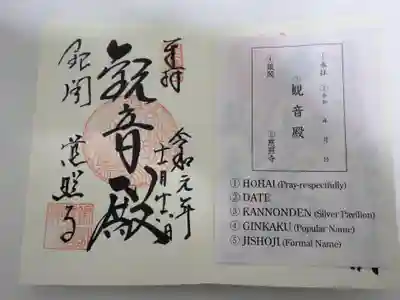 奉拝
令和元年
観音殿
銀閣
慈照寺
①奉拝 ②令和 年 月 日
③観音殿
④銀閣 ⑤慈照寺
① HOHAI (Pray-respectfully)
② DATE
③ KANNONDEN (Silver Pavilion)
④ GINKAKU (Popular Name)
⑤ JISHOJI (Formal Name)